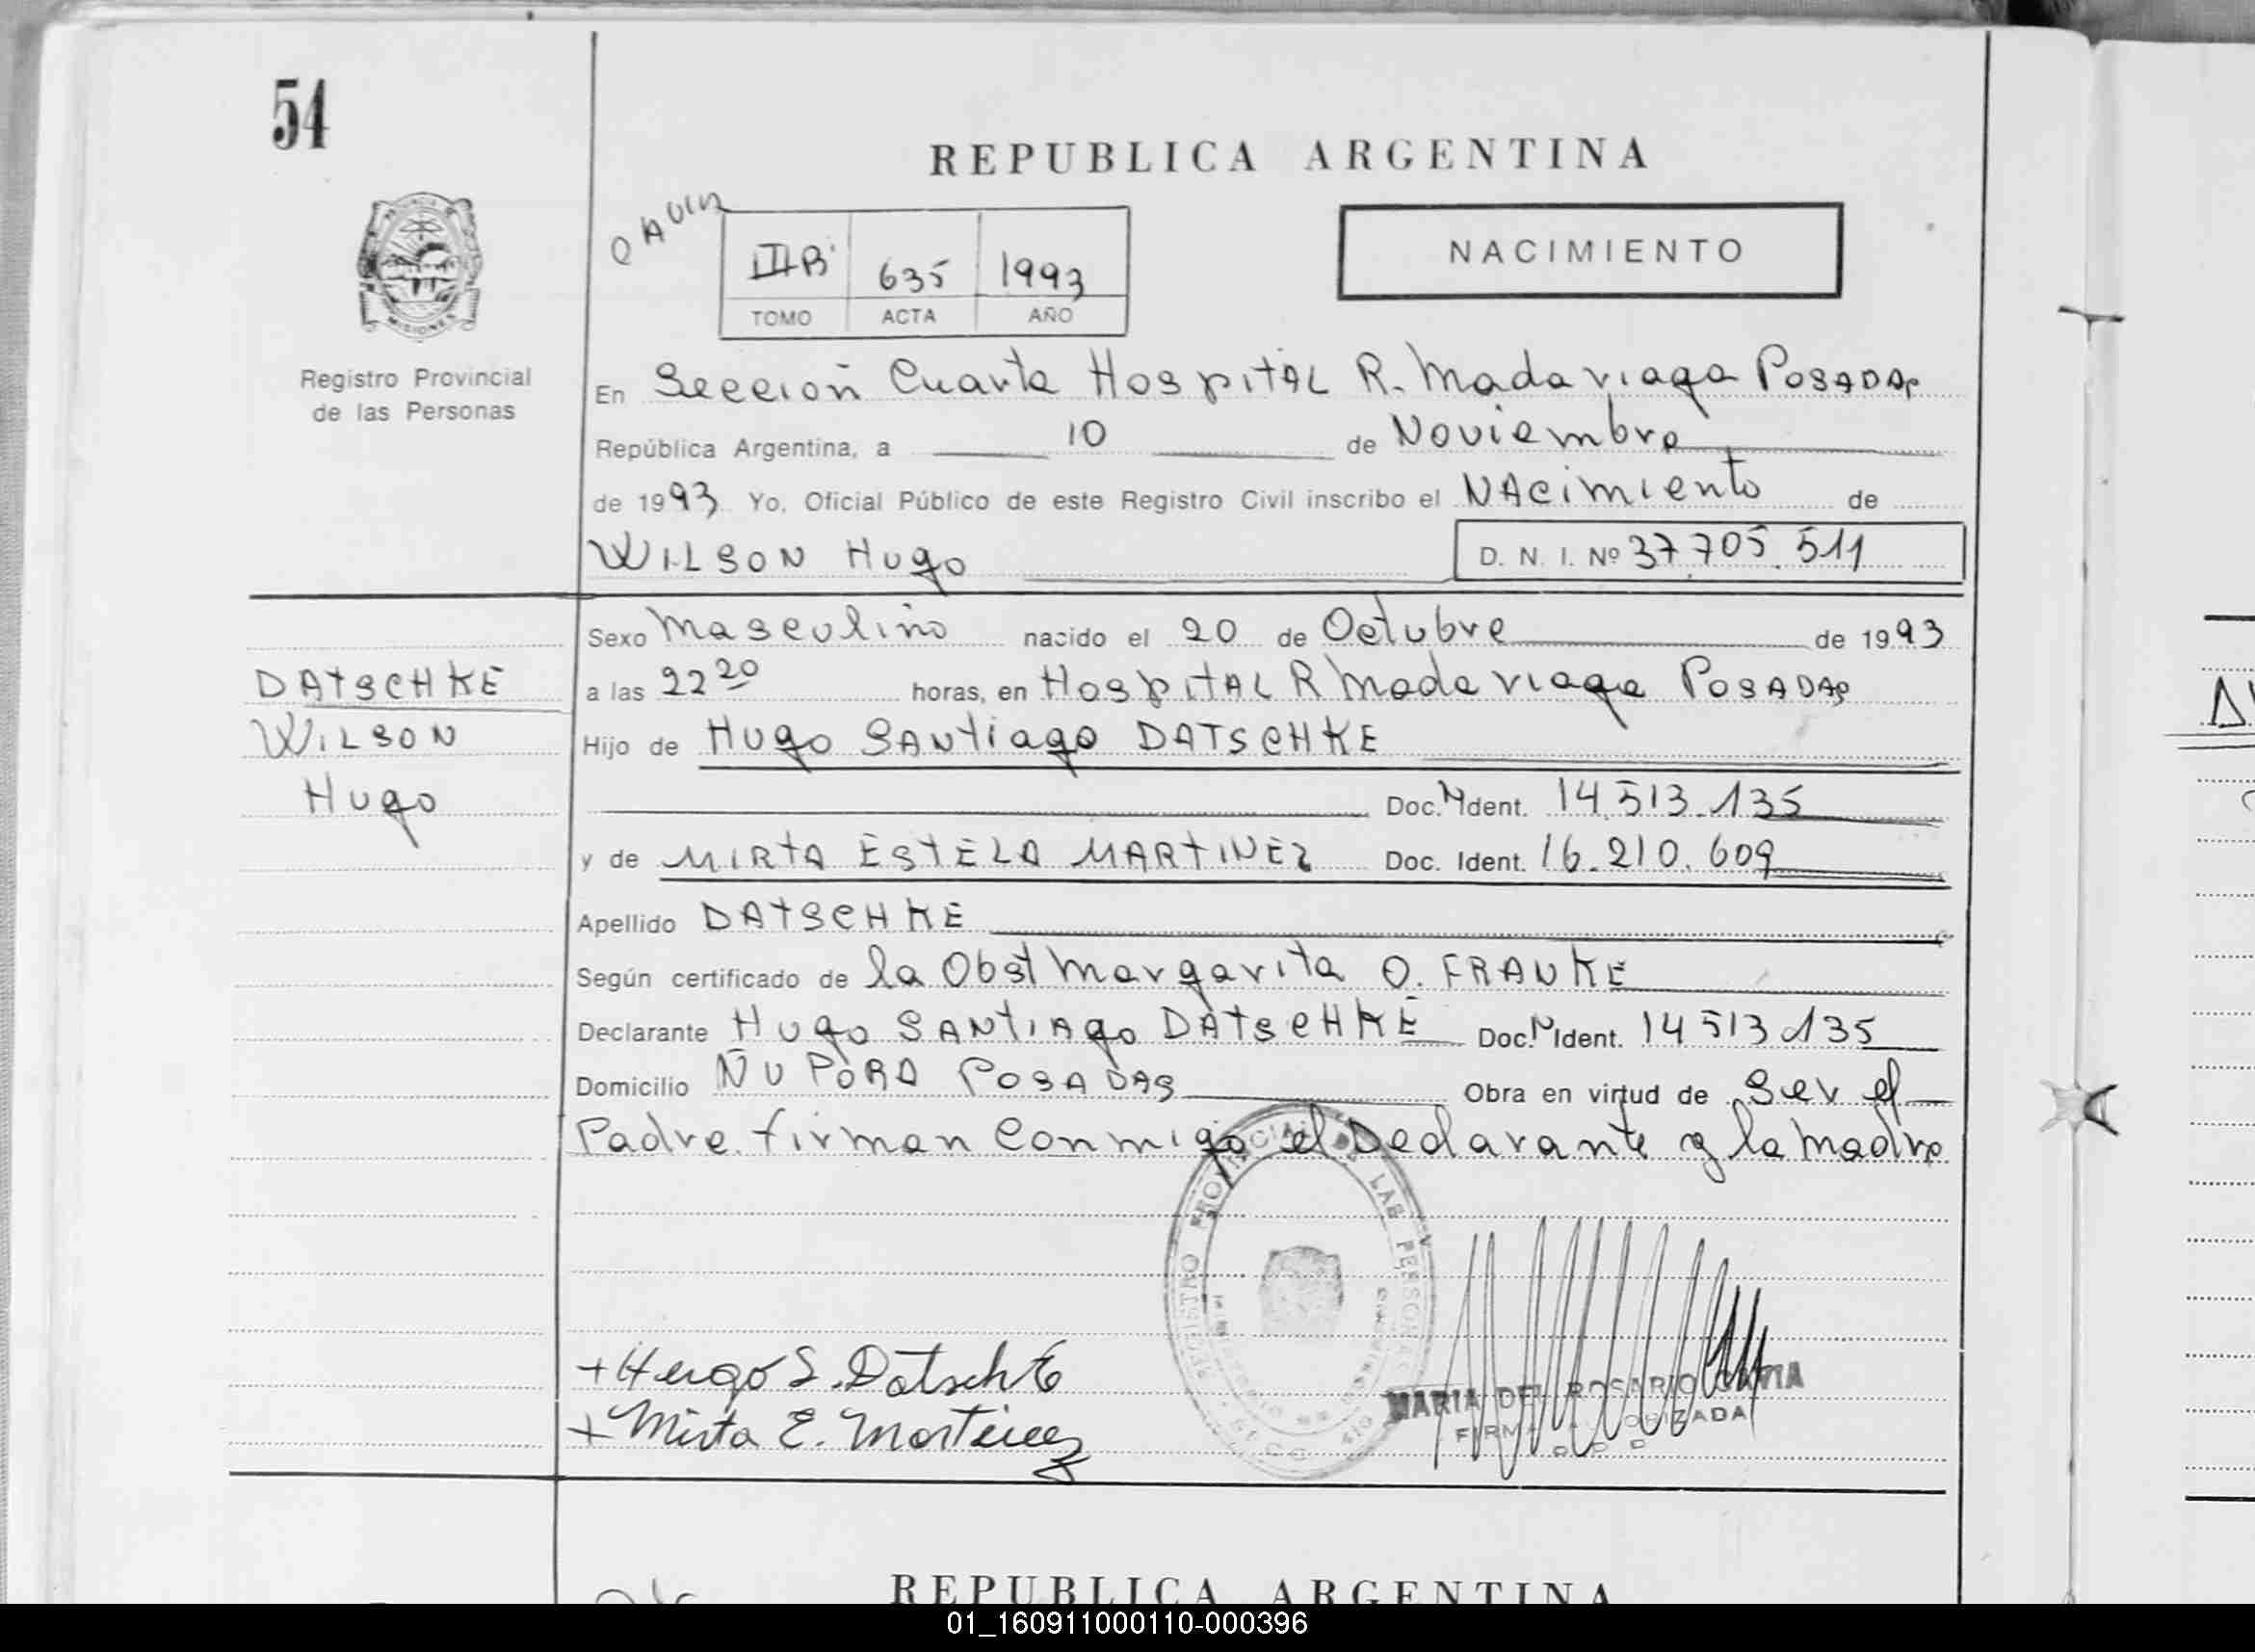 54
REPUBLICA ARGENTINA
III B 635 1993
TOMO ACTA AÑO
NACIMIENTO
MISIONES
Registro Provincial
de las Personas
En Sección Cuarta Hospital R. Madariaga POSADAS
República Argentina, a 10 de Noviembre
de 1993 Yo, Oficial Público de este Registro Civil inscribo el NAcimiento de
WILSON Hugo D. N. I. Nº 37.705.511
Sexo Masculino nacido el 20 de Octubre de 1993
DATSCHKE
a las 22 20 horas, en HospiTAL R Madariaga POSADAS
WILSON
Hijo de Hugo SANtiago DATSCHKE
Hugo
Doc. N Ident. 14.513.135
y de MIRTA ESTELA MARTINEZ Doc. Ident. 16.210.609
Apellido DATSCHKE
Según certificado de la Obst Margarita O. FRANKE
Declarante Hugo SANTIAgo DATSCHKE Doc. N Ident. 14 513 135
Domicilio ÑU PORA POSADAS Obra en virtud de Ser el
Padre. firman Conmigo el Declarante y la Madre
REGISTRO PROVINCIAL DE LAS PERSONAS
+ Hugo S. Datschke
+ Mirta E. Martinez
MARIA DEL ROSARIO
FIRMA AUTORIZADA
R P P
REPUBLICA ARGENTINA
01_160911000110-000396